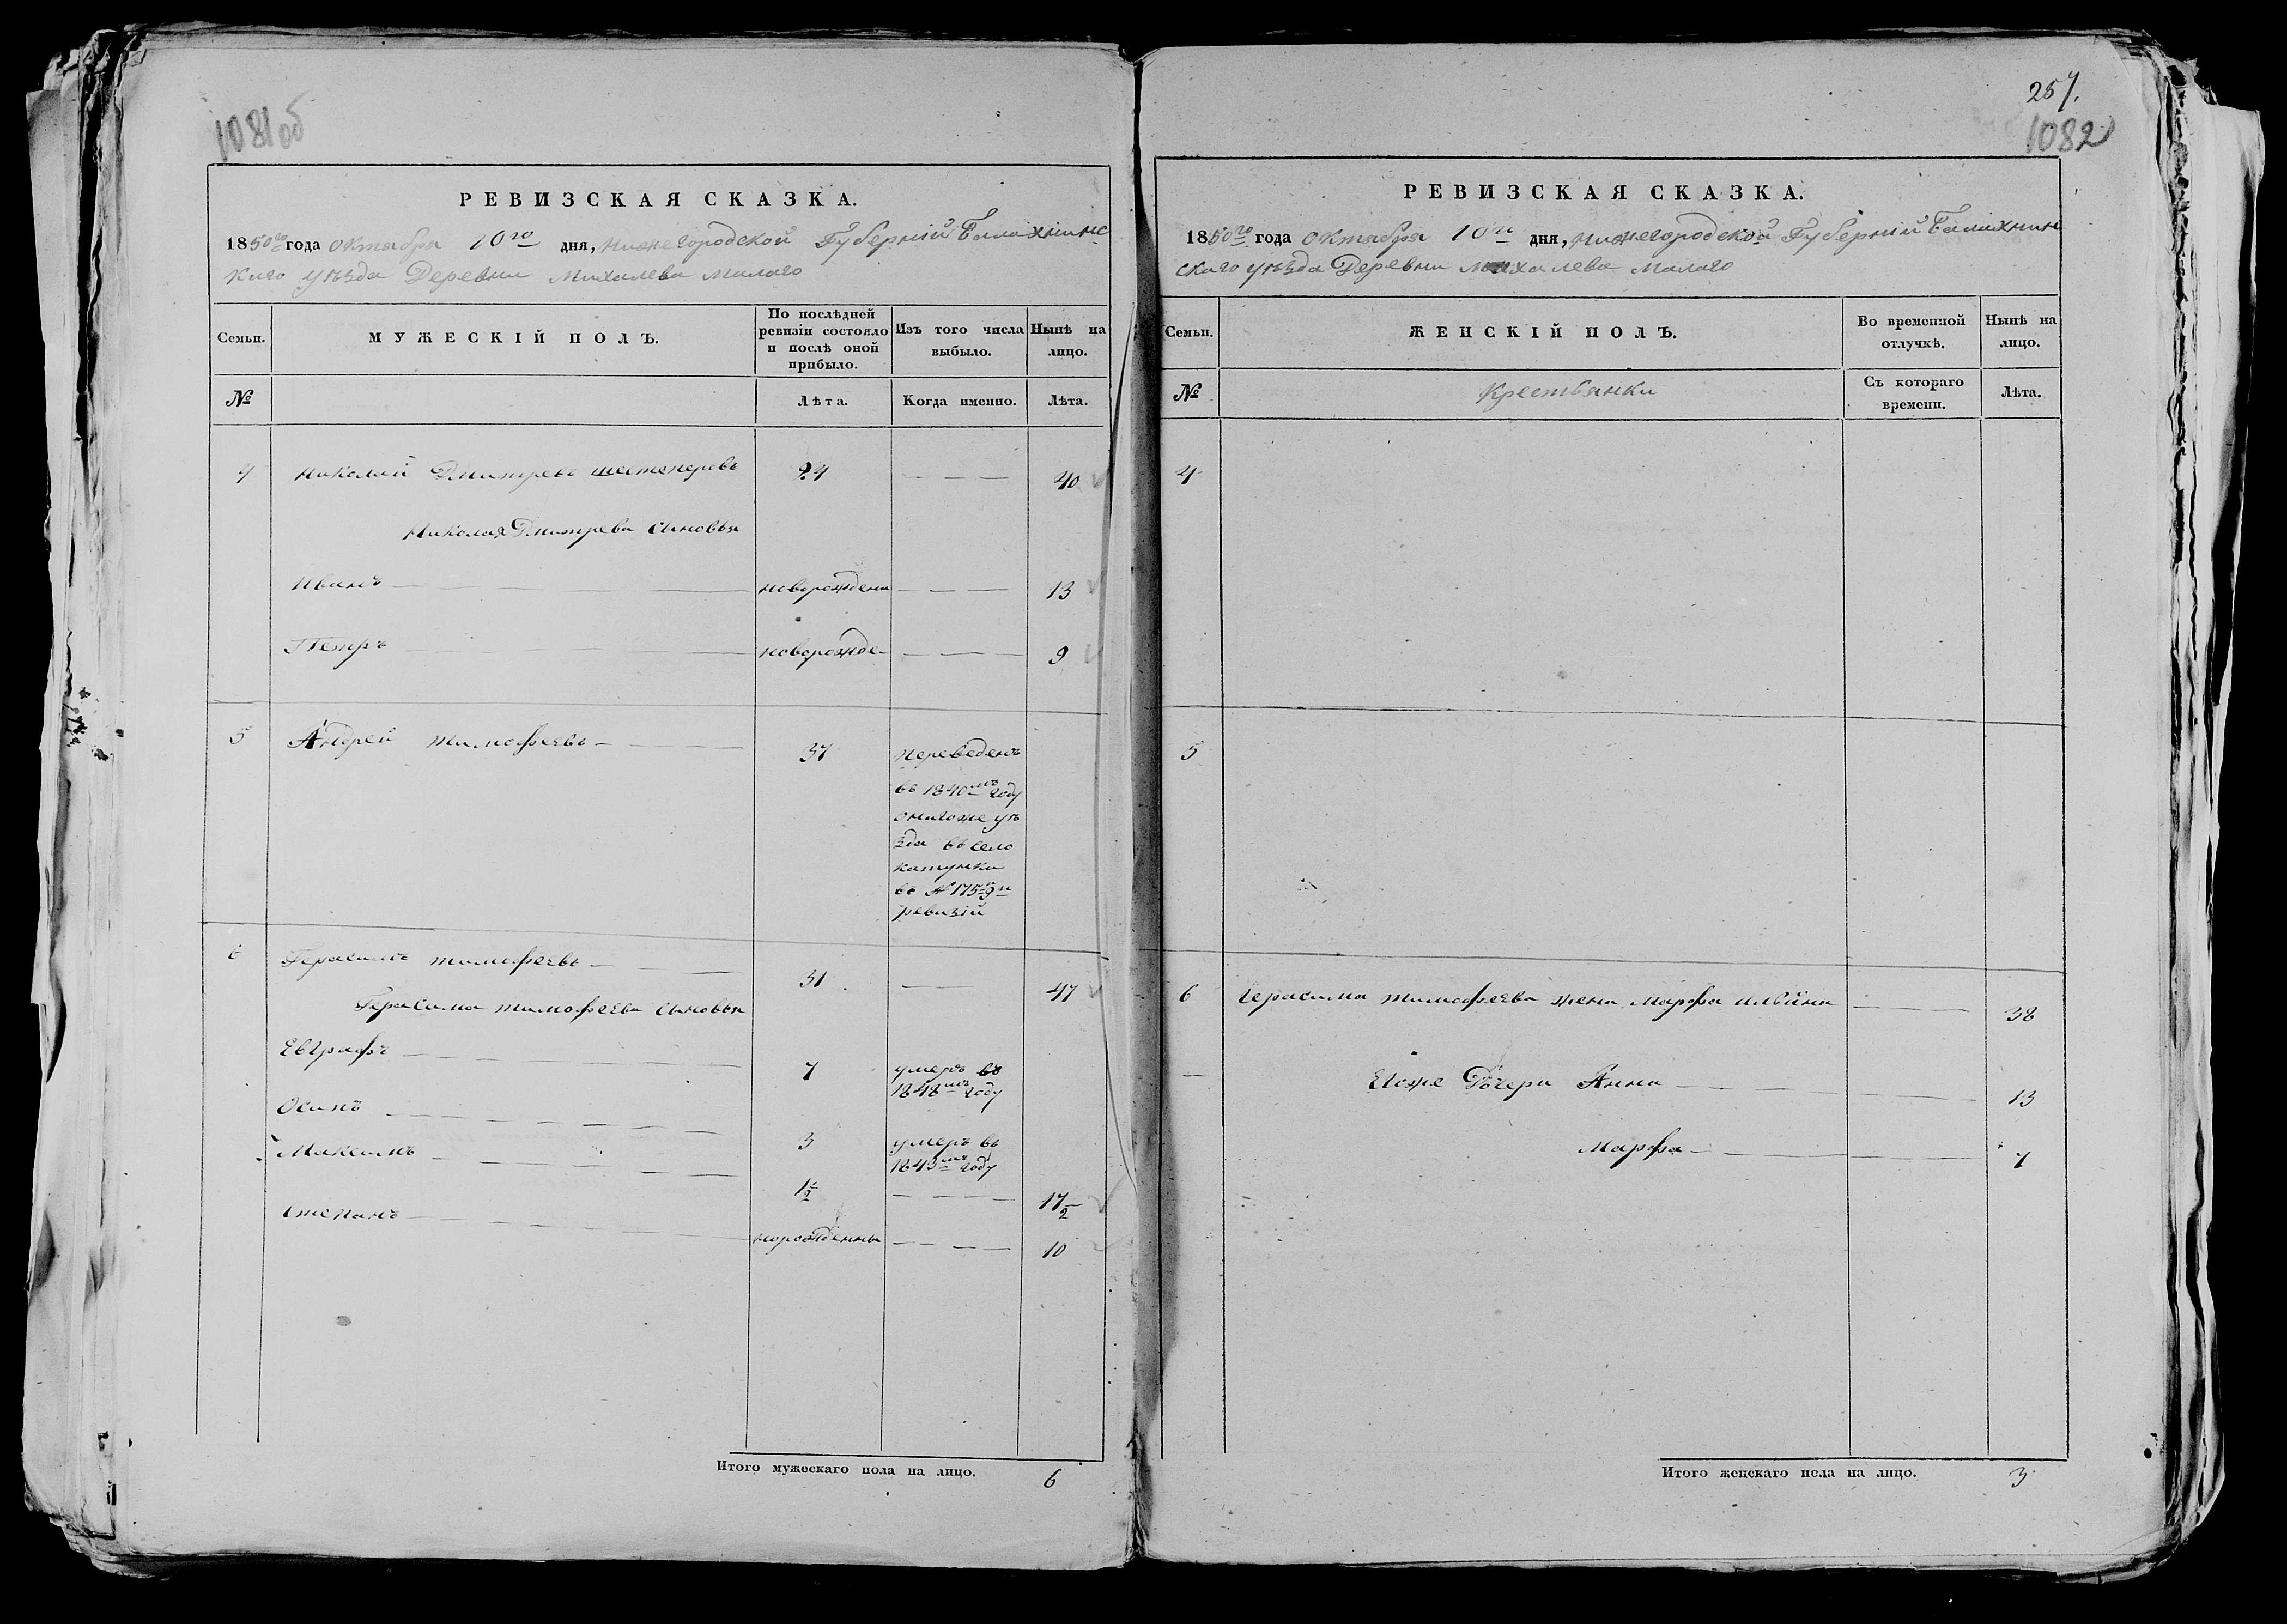 1081об
РЕВИЗСКАЯ СКАЗКА.
1850го года октября 10го дня, нижегородской Губерніи Балахнинс
каго уѣзда Деревни Михалева Малаго
Семьи. МУЖЕСКІЙ ПОЛЪ. По послѣдней ревизіи состояло и послѣ оной прибыло. Изъ того числа выбыло. Нынѣ на лицо.
№ Лѣта. Когда именно. Лѣта.
4 Николай Дмитревъ шестеперовъ 24 — — — 40
Николая Дмитрева сыновья
Иванъ — новорождени — — — 13
Петръ — новорожде — — — 9
5 Андрей тимофеевъ — 37 переведенъ
въ 1840мъ году
оногоже уѣ
зда въ село
катунки
въ № 175 9й
ревизіи
6 Герасимъ тимофеевъ — 31 — 47
Герасима тимофеева сыновья
Евграфъ — 7 умеръ въ
1848мъ году
Осипъ — 3 умеръ въ
1843мъ году
Максимъ — 1½ — — — 17½
Степанъ — норожденны — — — 10
Итого мужескаго пола на лицо. 6
257.
1082
РЕВИЗСКАЯ СКАЗКА.
1850го года октября 10го дня, нижегородской Губерніи Балахнин
скаго уѣзда Деревни михалева Малаго
Семьи. ЖЕНСКІЙ ПОЛЪ. Во временной отлучкѣ. Нынѣ на лицо.
№ Крестьянки Съ котораго времени. Лѣта.
4
5
6 Герасима тимофеева жена Марфа ильина — 38
Егоже дочери Анна — 13
Марфа — 7
Итого женскаго пола на лицо. 3